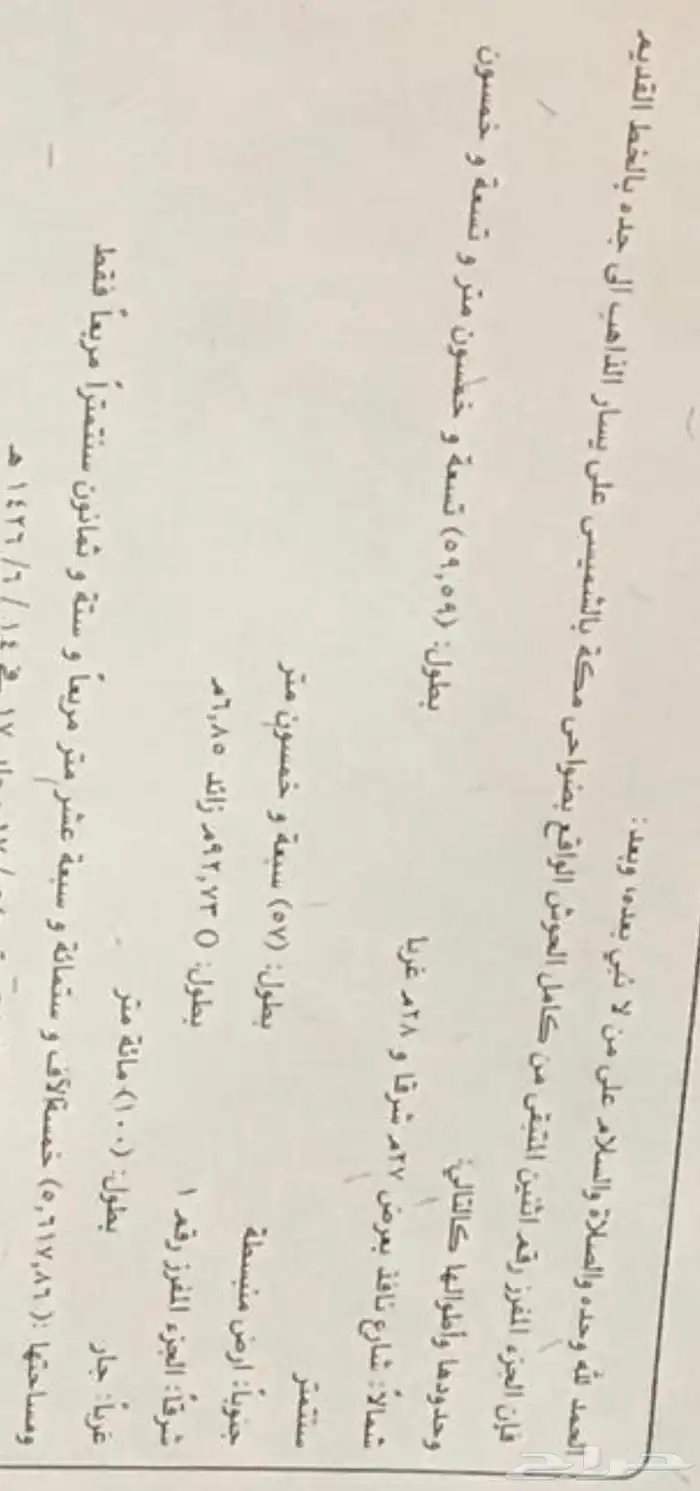 الحمد لله وحده والصلاة والسلام على من لا نبي بعده، وبعد:
فإن الجزء المفرز رقم اثنين المتبقى من كامل الحوش الواقع بضواحى مكة بالشميسى على يسار الذاهب الى جده بالخط القديم
وحدودها وأطوالها كالتالي:
شمالاً: شارع نافذ بعرض ٢٧م شرقا و ٢٨م غربا بطول: (٥٩,٥٩) تسعة و خمسون متر و تسعة و خمسون
سنتمتر
جنوباً: ارض منبسطة بطول: (٥٧) سبعة و خمسون متر
شرقاً: الجزء المفرز رقم ١ بطول: () ٩٢,٧٣م زائد ٦,٨٥م
غرباً: جار بطول: (١٠٠) مائة متر
ومساحتها: (٥,٦١٧,٨٦) خمسةالآف و ستمائة و سبعة عشر متر مربعاً و ستة و ثمانون سنتمتراً مربعاً فقط
١٧ في ١٤ / ٦ / ١٤٢٦ هـ
حراج